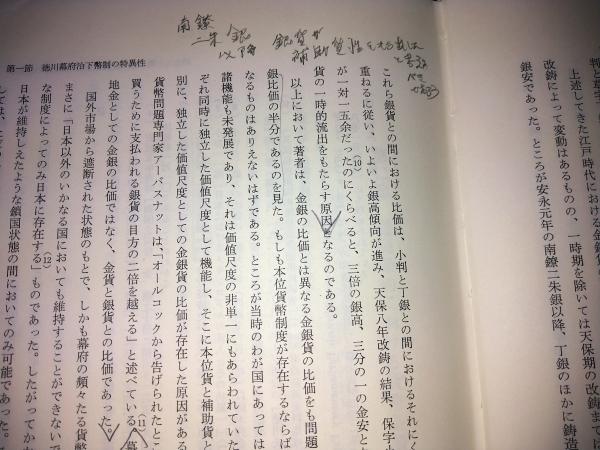 南鐐
二朱銀
以降 銀貨が
補助貨
第一節 徳川幕府治下幣制の特異性
上述してきた江戸時代における金銀貨の
改鋳によって変動はあるものの、一時期を除いては天保期の改鋳まで
銀安であった。ところが安永元年の南鐐二朱銀以降、丁銀のほかに鋳造
これら銀貨との間における比価は、小判と丁銀との間におけるそれにく
重ねるに従い、いよいよ銀高傾向が進み、天保八年改鋳の結果、保字小
が一対一五余だった(10)のにくらべると、三倍の銀高、三分の一の金安と
貨の一時的流出をもたらす原因となるのである。
以上において著者は、金銀の比価とは異なる金銀貨の比価をも問題
銀比価の半分であるのを見た。もしも本位貨幣制度が存在するならば
なるものはありえないはずである。ところが当時のわが国にあっては
諸機能も未発展であり、それは価値尺度の非単一にもあらわれていた
それ同時に独立した価値尺度として機能し、そこに本位貨と補助貨と
別に、独立した価値尺度としての金銀貨の比価が存在した原因がある
貨幣問題専門家アーバスナットは、「オールコックから告げられたとこ
買うために支払われる銀貨の目方の二倍を越える」と述べている(11)。幕
地金としての金銀の比価ではなく、金貨と銀貨との比価であった。
国外市場から遮断された状態のもとで、しかも幕府の頻々たる貨幣
まさに「日本以外のいかなる国においても維持することができない
な制度によってのみ日本に存在する」(12)ものであった。したがってか
日本が維持しえたような鎖国状態の間においてのみ可能であった。